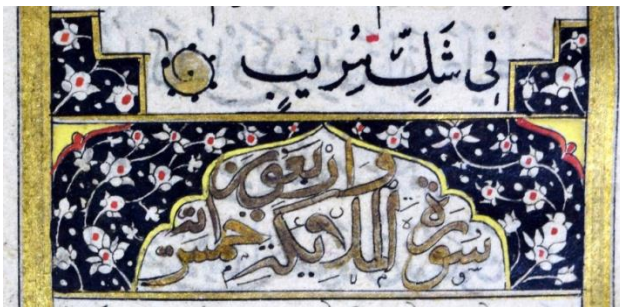 فِى شَكٍّ مُرِيبٍ
سورة الملايكة خمس واربعون اية